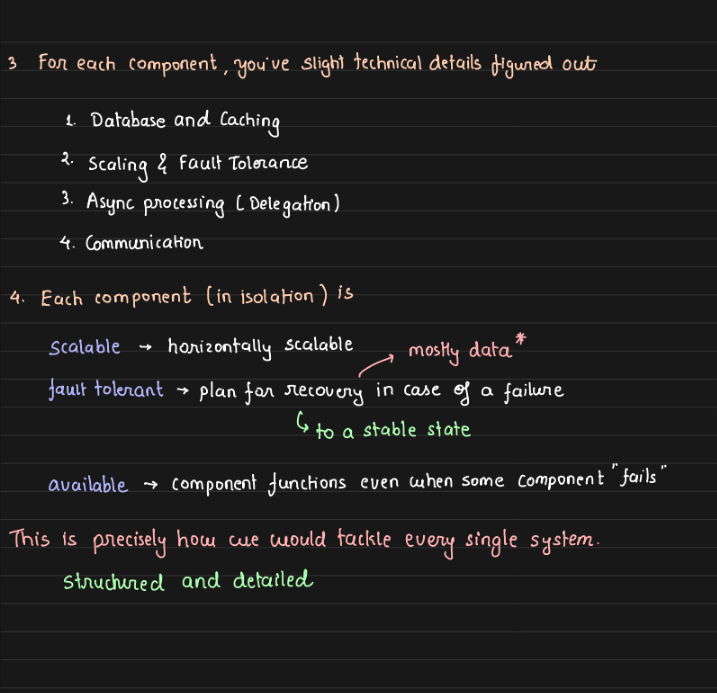 3 For each component, you've slight technical details figured out
1. Database and Caching
2. Scaling & Fault Tolerance
3. Async processing (Delegation)
4. Communication
4. Each component (in isolation) is
scalable → horizontally scalable
mostly data*
fault tolerant → plan for recovery in case of a failure
↳ to a stable state
available → component functions even when some component "fails"
This is precisely how we would tackle every single system.
structured and detailed